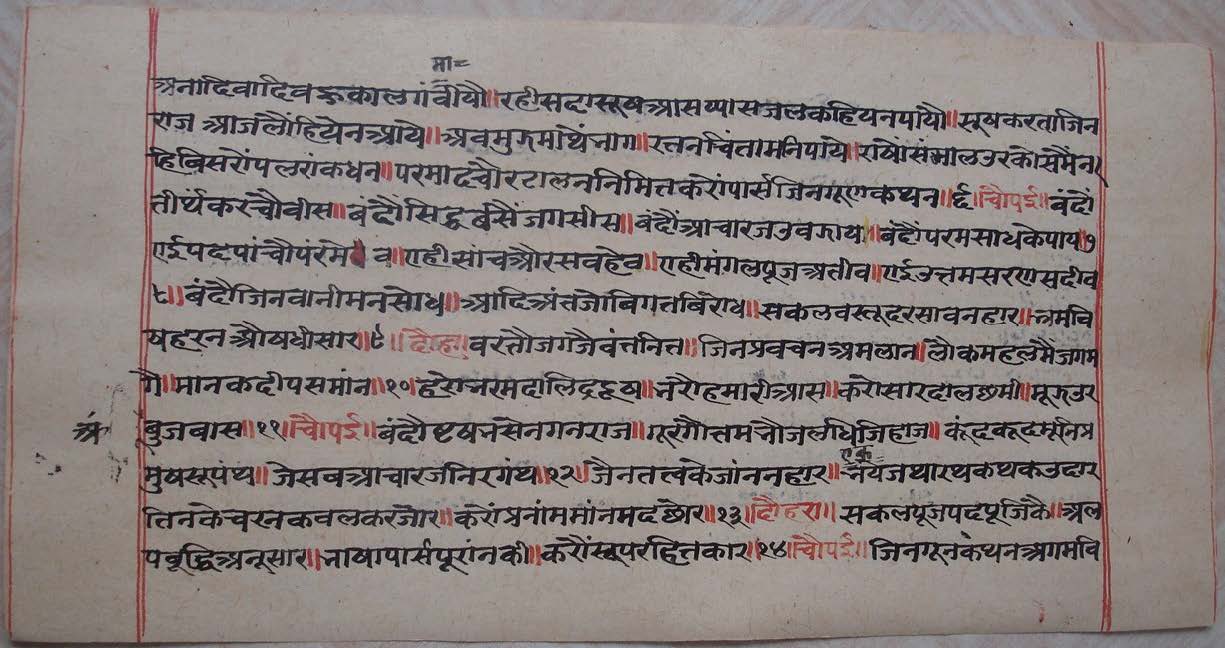 मा=
अनादिवादिवहुकालगंवीयौ॥रहीसदासूषआसप्पासजलकहिंयनपांयौ॥सूषकरताजिन
राजआजलौंहियेनआयौ॥अवमुऊमाथेंभाग॥रतनचिंतामनिपांये॥राषौसंभालउरकोसमैंन।
हिबिसरौंपलरांकधन॥परमादचौरटालननिमितकरौंपार्सजिनगूणकथन॥६॥चौपई॥बंदौं
तीर्थंकरचौवीस॥बंदौंसिद्धवसैंजगसीस॥बंदौंआचारजउवऊाय॥बंदौंपरमसाधकेपाय७
एईपदपांचौपंरमे व॥एहीसांचऔरसवहेव॥एहीमंगलपूजअतीव॥एईउत्तमसरणसदीव
८॥बंदौंजिनवानीमनसोध॥आदिअंतजोबिगतबिरोध॥सकलवस्तूदरसावनहार॥भ्रमवि
षहरनऔषधीसार॥९॥दौहा॥वरतौजगजैवंतनित॥जिनप्रवचनअमलान॥लौकमहलमैंजगम
गै॥मांनकदीपसमांन॥१०॥हरोभरमदालिद्रदूष॥भरौहमारीआस॥करोसारदालछमी॥मूऊउर
वुजबास॥११॥चौपई॥बंदौंवृषभसेनगनराज॥गूरगौतमभौजलधिजिहाज॥कूंदकूदमूनिप्र
अं
मुषसूपंथ॥जेसवआचारजनिरगंथ॥१२॥जैनतत्वकेजांननहार॥भयेजथारथकथकउदार
एक
तिनकेचरनकवलकरजोर॥करौंप्रनांममांनमदछोर॥१३॥दौहरा॥सकलपूजपदपूजिकै॥अल
पबूद्धिअनूसार॥भाषापार्सपूरांनकी॥करौंस्वपरहितकार॥१४॥चौपई॥जिनगूनकथनअगमवि